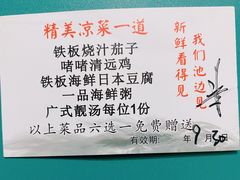 精美凉菜一道
铁板烧汁茄子
啫啫清远鸡
铁板海鲜日本豆腐
一品海鲜粥
广式靓汤每位1份
以上菜品六选一免费赠送
有效期: 年9月30
新鲜看得见
我们池边见